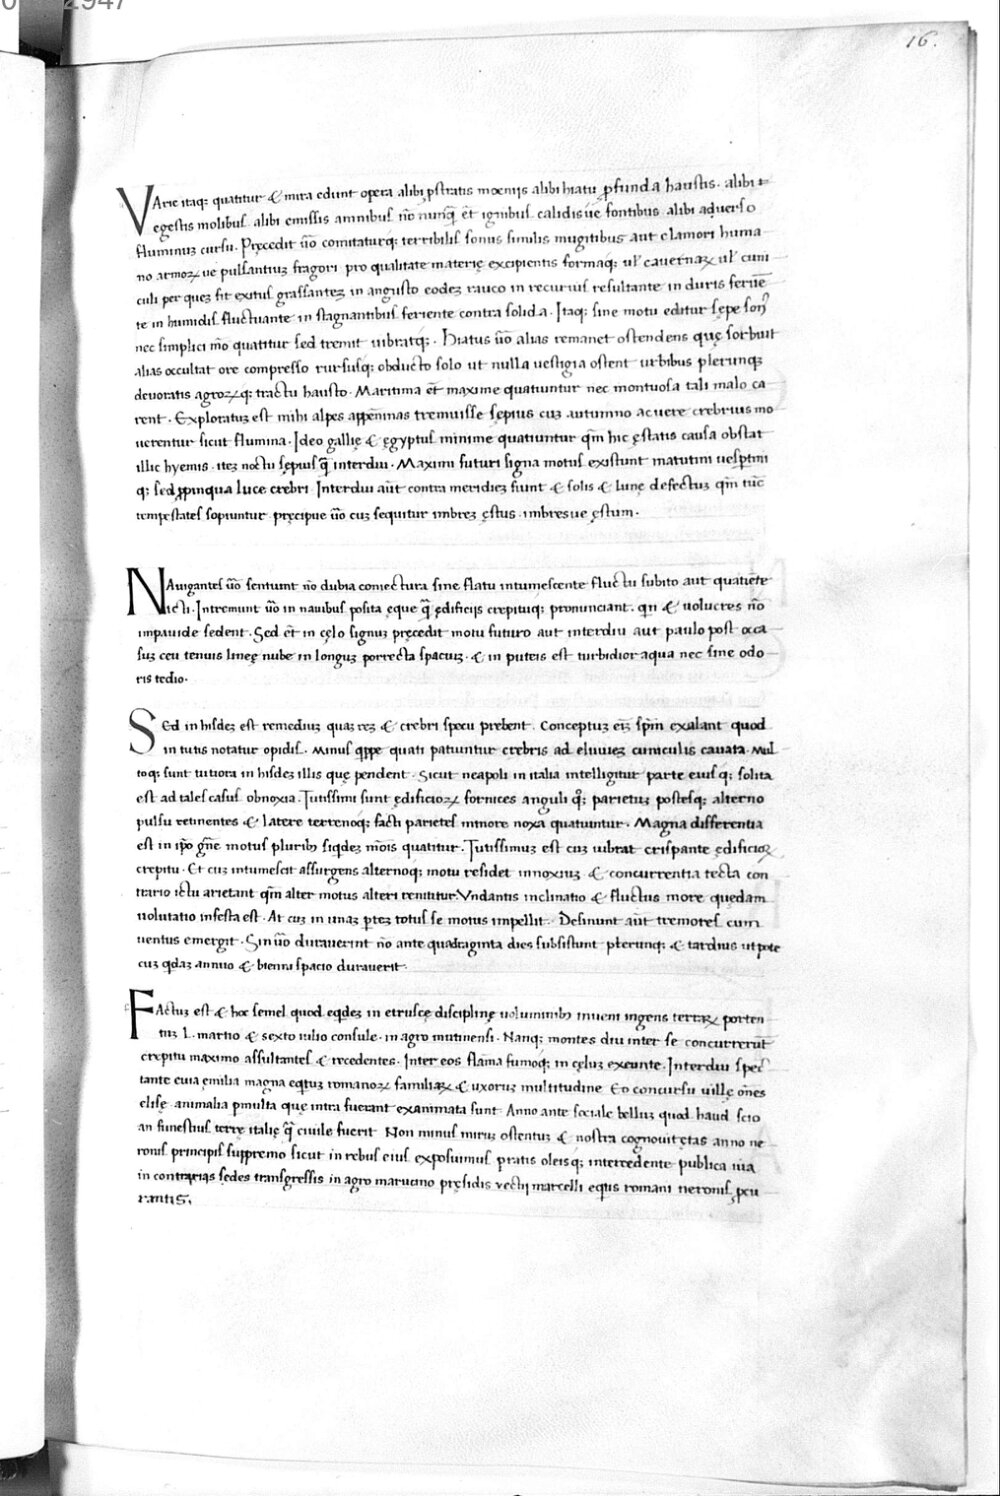 16.
VArie itaq; quatitur & mira edunt opera alibi ꝓstratis moenijs alibi hiatu ꝓfunda haustis. alibi
egestis molibus alibi emissis amnibus nō nunq̄ et ignibus calidisue fontibus alibi aduerso
fluminuꝫ cursu. Precedit uō comitaturq; terribilis sonus similis mugitibus aut clamori huma
no armoꝝ ue pulsantiuꝫ fragori pro qualitate materię excipientis formaq; uł cauernaꝝ uł cuni
culi per queꝫ fit exitus grassanteꝫ in angusto eodeꝫ rauco in recuruis resultante in duris ferue
te in humidis fluctuante in stagnantibus feriente contra solida. Itaq; sine motu editur sępe
nec simplici mō quatitur sed tremit uibratq;. Hiatus uō alias remanet ostendens quę sorbuit
alias occultat ore compresso rursusq; obducto solo ut nulla uestigia ostent urbibus plerunqꝫ
deuoratis agroꝝq; tractu hausto. Maritima ēt maxime quatiuntur nec montuosa tali malo ca
rent. Exploratuꝫ est mihi alpes appēninas tremuisse sępius cuꝫ autumno ac uere crebrius mo
uerentur sicut flumina. Ideo gallię & ęgyptus minime quatiuntur qm̄ hic ęstatis causa obstat
illic hyemis. iteꝫ noctu sępius q̄ interdiu. Maximi futuri signa motus existunt matutini uesꝑtini
q; sed ꝓpinqua luce crebri. Interdiu aūt contra meridieꝫ fiunt & solis & lunę defectuꝫ qm̄ tūc
tempestates sopiuntur. pręcipue uō cuꝫ sequitur imbreꝫ ęstus. imbresue ęstum.
NAuigantes uō sentiunt nō dubia coniectura sine flatu intumescente fluctu subito aut quatiēte
icti. Intremunt uō in nauibus posita ęque q̄ ędificijs crepituq; pronunciant. qn & uolucres nō
impauide sedent. Sed ēt in cęlo signuꝫ pręcedit motu futuro aut interdiu aut paulo post occa
suꝫ ceu tenuis linęę nube in longuꝫ porrecta spaciuꝫ. & in puteis est turbidior aqua nec sine odo
ris tedio.
SEd in hisdeꝫ est remediuꝫ quaꝫ reꝫ & crebri specu prebent. Conceptuꝫ eīꝫ spm̄ exalant quod
in tutis notatur opidis. Minus qppe quati patiuntur crebris ad eluuieꝫ cuniculis cauata. Mul
toq; sunt tutiora in hisdeꝫ illis quę pendent. Sicut neapoli in italia intelligitur parte eius q; solita
est ad tales casus obnoxia. Tutissimi sunt ędificioꝝ fornices anguli qͦ; parietuꝫ postesq; alterno
pulsu retinentes & latere terrenoq; facti parietes minore noxa quatiuntur. Magna differentia
est in ipō gn̄e motus pluribꝰ siqdeꝫ mōis quatitur. Tutissimuꝫ est cuꝫ uibrat crispante ędificioꝝ
crepitu. Et cuꝫ intumescit assurgens alternoq; motu residet innoxiuꝫ. & concurrentia tecta con
trario ictu arietant qm̄ alter motus alteri renititur. Vndantis inclinatio & fluctus more quędam
uolutatio infesta est. At cuꝫ in unaꝫ ꝑteꝫ totus se motus impellit. Desinunt aūt tremores cum
uentus emergit. Sin uō durauerint nō ante quadraginta dies subsistunt plerunq; & tardius utpote
cuꝫ qdaꝫ annuo & bienni spacio durauerit.
FActuꝫ est & hoc semel quod eqdeꝫ in etruscę disciplinę uoluminibꝰ inueni ingens terraꝝ porten
tuꝫ L. martio & sexto iulio consule. in agro mutinensi. Nanq; montes diu inter se concurrerūt
crepitu maximo assultantes & recedentes. Inter eos flāma fumoq; in cęluꝫ exeunte. Interdiu spec
tante euia ęmilia magna eqtuꝫ romanoꝝ familiaꝝ & uxoruꝫ multitudine. Eo concursu uillę ōnes
elisę. animalia ꝑmulta quę intra fuerant exanimata sunt. Anno ante sociale belluꝫ quod haud scio
an funestius terrę italię q̄ ciuile fuerit. Non minus miruꝫ ostentuꝫ & nostra cognouit ętas anno ne
ronis principis supremo sicut in rebus eius exposuimus pratis oleisq; intercedente publica uia
in contrarias sedes transgressis in agro marucino pręsidis uectij marcelli eqtis romani neronis ꝓcu
rantis.